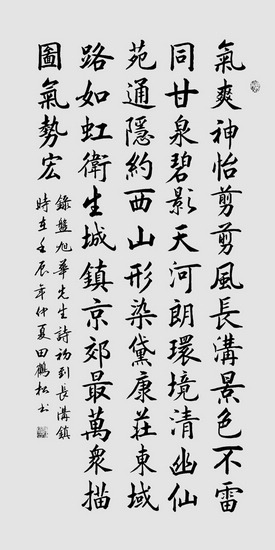 氣爽神怡剪剪風長溝景色不雷
同甘泉碧影天河朗環境清幽仙
苑通隱約西山形染黛康莊東域
路如虹衛生城鎮京郊最萬衆描
圖氣勢宏
錄盤旭華先生詩初到長溝鎮
時在壬辰年仲夏田鶴松書